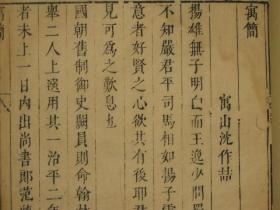 寓簡
寓山沈作喆
揚雄無子明亡而王逸少問蜀
不知嚴君平司馬相如揚子雲
意者好賢之心欲其有後耶君
見可為之歎息也
國朝舊制御史闕員則命翰林
舉二人上選用其一治平二年
者未上一日內出尚書郎范純